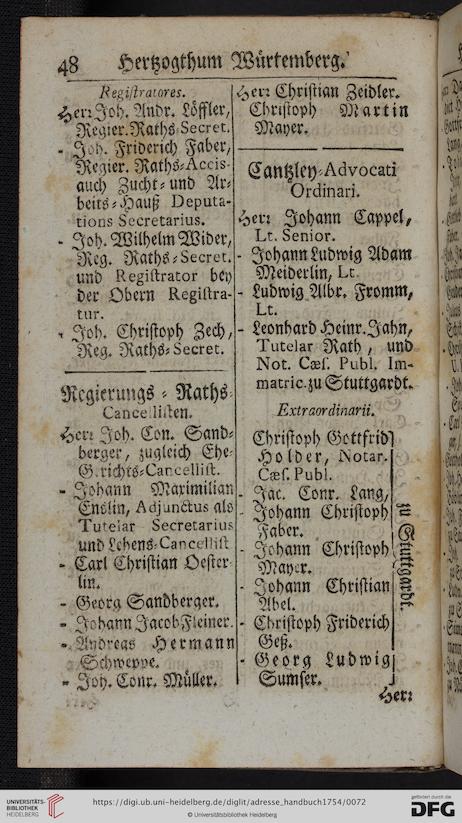 48 Hertzogthum Würtemberg.
Registratores.
Herr Joh. Andr. Löffler,
Regier. Raths-Secret.
- Joh. Friderich Faber,
Regier. Raths-Accis-
auch Zucht- und Ar-
beits-Hauß Deputa-
tions Secretarius.
- Joh. Wilhelm Wider,
Reg. Raths-Secret.
und Registrator bey
der Obern Registra-
tur.
- Joh. Christoph Zech,
Reg. Raths-Secret.
Regierungs-Raths-
Cancellisten.
Herr Joh. Con. Sand-
berger, zugleich Ehe-
Gerichts-Cancellist.
- Johann Maximilian
Enslin, Adjunctus als
Tutelar Secretarius
und Lehens-Cancellist
- Carl Christian Oester-
lin.
- Georg Sandberger.
- Johann Jacob Fleiner.
- Andreas Hermann
Schweppe.
- Joh. Conr. Müller.
Herr Christian Zeidler.
Christoph Martin
Mayer.
Cantzley-Advocati
Ordinari.
Herr Johann Cappel,
Lt. Senior.
- Johann Ludwig Adam
Meiderlin, Lt.
- Ludwig Albr. Fromm,
Lt.
- Leonhard Heinr. Jahn,
Tutelar Rath, und
Not. Cæs. Publ. Im-
matric. zu Stuttgardt.
Extraordinarii.
Christoph Gottfrid
Holder, Notar.
Cæs. Publ.
- Jac. Conr. Lang,
- Johann Christoph
Faber.
- Johann Christoph
Mayer.
- Johann Christian
Abel.
- Christoph Friderich
Geß.
- Georg Ludwig
Sumser.
zu Stuttgardt.
Herr
UNIVERSITÄTS-
BIBLIOTHEK
HEIDELBERG
https://digi.ub.uni-heidelberg.de/diglit/adresse_handbuch1754/0072
© Universitätsbibliothek Heidelberg
gefördert durch die
DFG